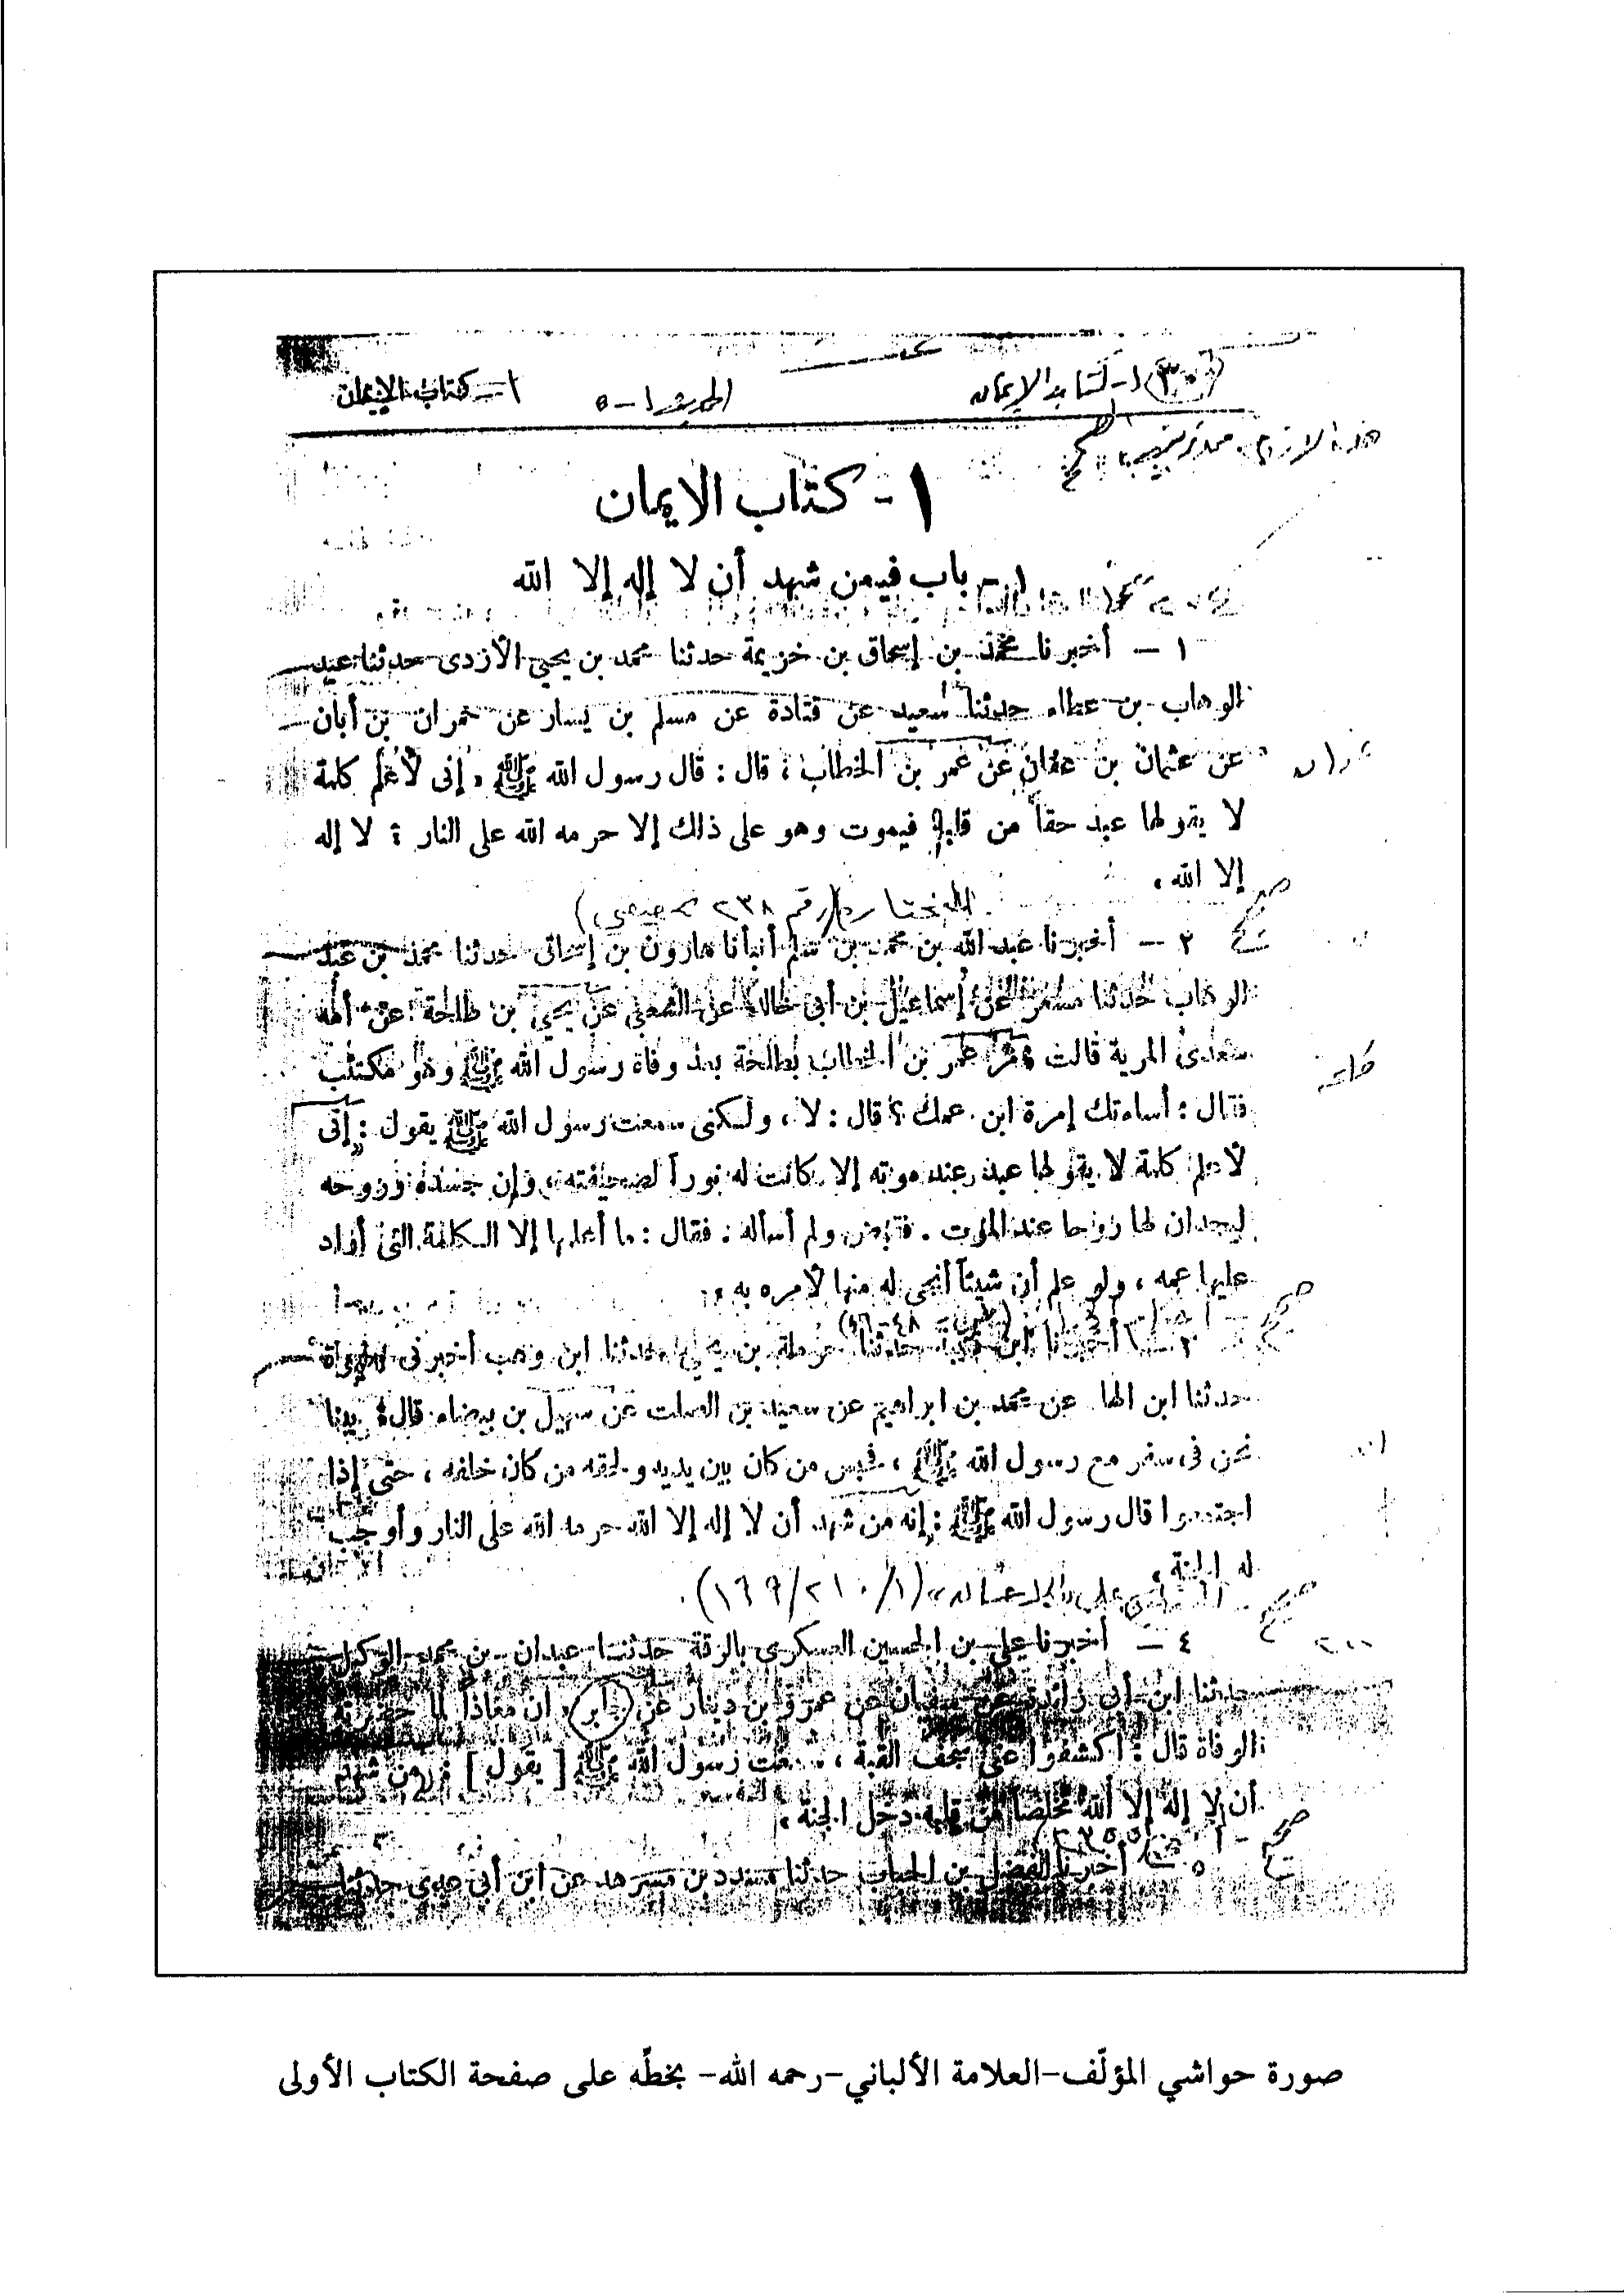 (٣٠) ١- كتاب الإيمان
الحديث ١ - ٥
١ - كتاب الإيمان
١ - كتاب الايمان
١ - باب فيمن شهد أن لا إله إلا الله
١ - أخبرنا محمد بن إسحاق بن خزيمة حدثنا محمد بن يحيى الأزدى حدثنا عبد
الوهاب بن عطاء حدثنا سعيد عن قتادة عن مسلم بن يسار عن حمران بن أبان
عن عثمان بن عفان عن عمر بن الخطاب قال : قال رسول الله ﷺ إنى لأعلم كلمة
لا يقولها عبد حقاً من قلبه فيموت وهو على ذلك إلا حرمه الله على النار : لا إله
إلا الله .
صحيح
المختارة (رقم ٢٣٨
٢ - أخبرنا عبد الله بن محمد بن سلم أنبأنا هارون بن إسحاق حدثنا محمد بن عبد
الوهاب حدثنا مسعر عن إسماعيل بن أبى خالد عن الشعبي عن يحيى بن طلحة عن أمه
سعدى المرية قالت مر عمر بن الخطاب بطلحة بعد وفاة رسول الله ﷺ وهو مكتئب
فقال : أساءتك إمرة ابن عمك ؟ قال : لا ، ولكنى سمعت رسول الله ﷺ يقول : إنى
لأعلم كلمة لا يقولها عبد عند موته إلا كانت له نوراً لصحيفته ، وإن جسده وروحه
ليجدان لها روحا عند الموت . فقبض ولم أسأله . فقال : ما أعلمها إلا الكلمة التى أراد
عليها عمه ، ولو علم أن شيئاً أنجى له منها لأمره به .
صحيح
٣ - أخبرنا ابن قتيبة حدثنا حرملة بن يحيى حدثنا ابن وهب أخبرنى حيوة
حدثنا ابن الهاد عن محمد بن ابراهيم عن سعيد بن الصلت عن سهيل بن بيضاء قال : بينا
نحن فى سفر مع رسول الله ﷺ ، فحبس من كان بين يديه ولحقه من كان خلفه ، حتى إذا
اجتمعوا قال رسول الله ﷺ : إنه من شهد أن لا إله إلا الله حرمه الله على النار وأوجب
له الجنة .
صحيح
(١/ ٢١٠/ ١٦٩) .
٤ - أخبرنا على بن الحسين العسكرى بالرقة حدثنا عبدان بن محمد الوكيل
حدثنا ابن أبى زائدة عن سفيان عن عمرو بن دينار عن جابر ، ان معاذاً لما حضرته
الوفاة قال : اكشفوا عنى سجف القبة ، سمعت رسول الله ﷺ [ يقول ] من شهد
أن لا إله إلا الله مخلصاً من قلبه دخل الجنة .
صحيح
٥ - أخبرنا الفضل بن الحباب حدثنا مسدد بن مسرهد عن ابن أبى عدى حدثنا
صورة حواشي المؤلّف-العلامة الألباني-رحمه الله- بخطّه على صفحة الكتاب الأولى